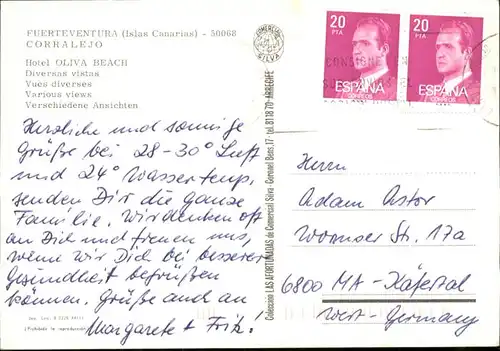 FUERTEVENTURA (Islas Canarias) - 50068
CORRALEJO
Hotel OLIVA BEACH
Diversas vistas
Vues diverses
Various views
Verschiedene Ansichten
Herzliche und sonnige
Grüße bei 28-30° Luft
und 24° Wassertemp.
senden Dir die ganze
Familie. Wir denken oft
an Dich und freuen uns,
wenn wir Dich bei besserer
Gesundheit begrüßen
können. Grüße auch an
Margarete + Fritz!
(Prohibida la reproducción)
COMERCIAL
SILVA
Colección LAS AFORTUNADAS de Comercial Silva - Coronel Bens, 17 - tel. 81 18 70 - ARRECIFE
20
PTA
ESPAÑA
CORREOS
20
PTA
ESPAÑA
CORREOS
Herrn
Adam Astor
Wormser Str. 17a
6800 MA-Käfertal
West-Germany